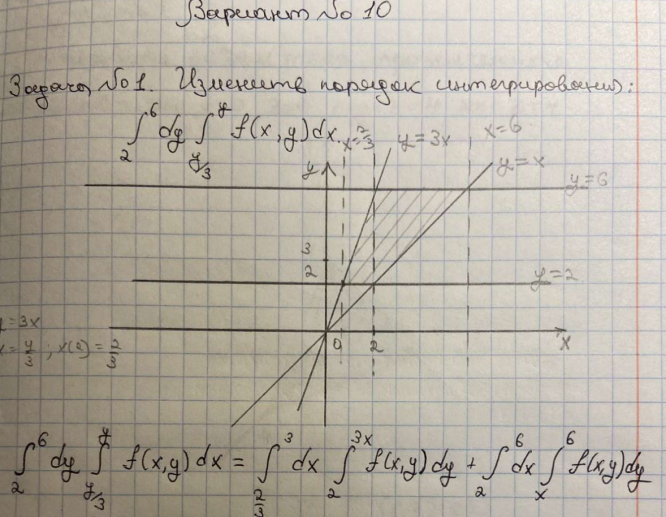 Вариант №10
Задача №1. Изменить порядок интегрирования:
∫₂⁶ dy ∫_{y/3}^{y} f(x,y)dx.
x=2/3
y=3x
x=6
y=x
y
y=6
3
2
y=2
0
2
x
=3x
x=y/3; x(2)=2/3
∫₂⁶ dy ∫_{y/3}^{y} f(x,y)dx = ∫_{2/3}^{3} dx ∫₂^{3x} f(x,y)dy + ∫₂⁶ dx ∫ₓ⁶ f(x,y)dy